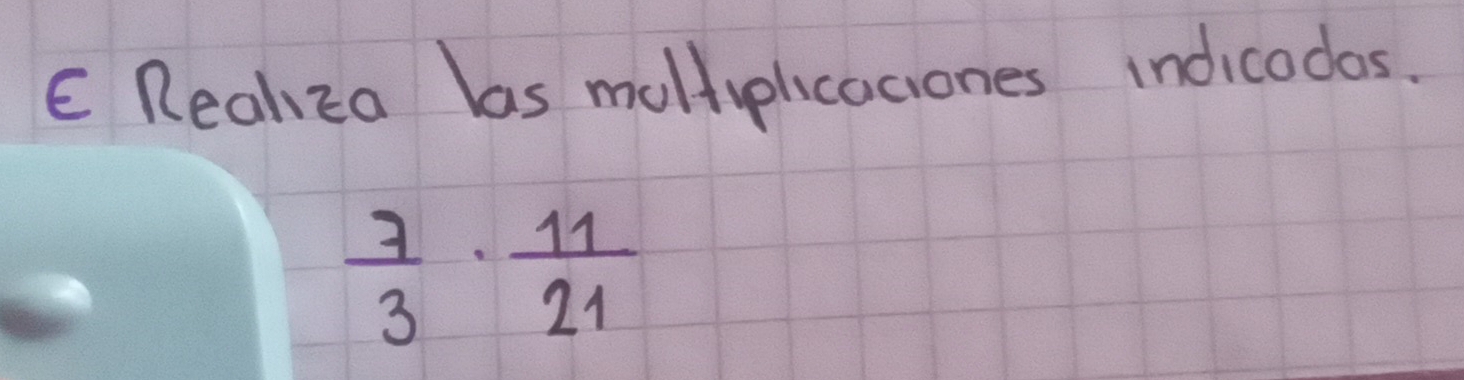 E Realiza las multiplicaciones indicadas.
7/3 · 11/21